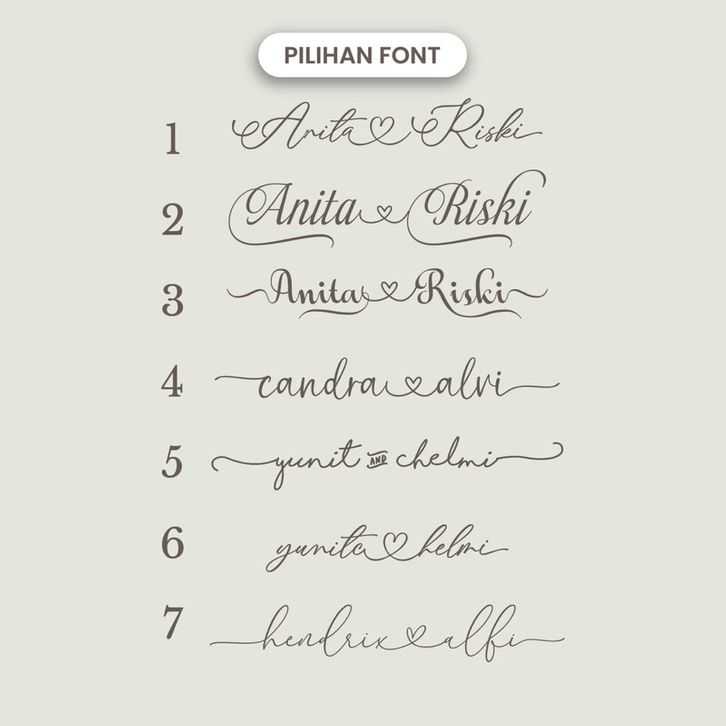 PILIHAN FONT
1 Anita Riski
2 Anita Riski
3 Anita Riski
4 candra alvi
5 yunit AND chelmi
6 yunita helmi
7 hendrix alfi